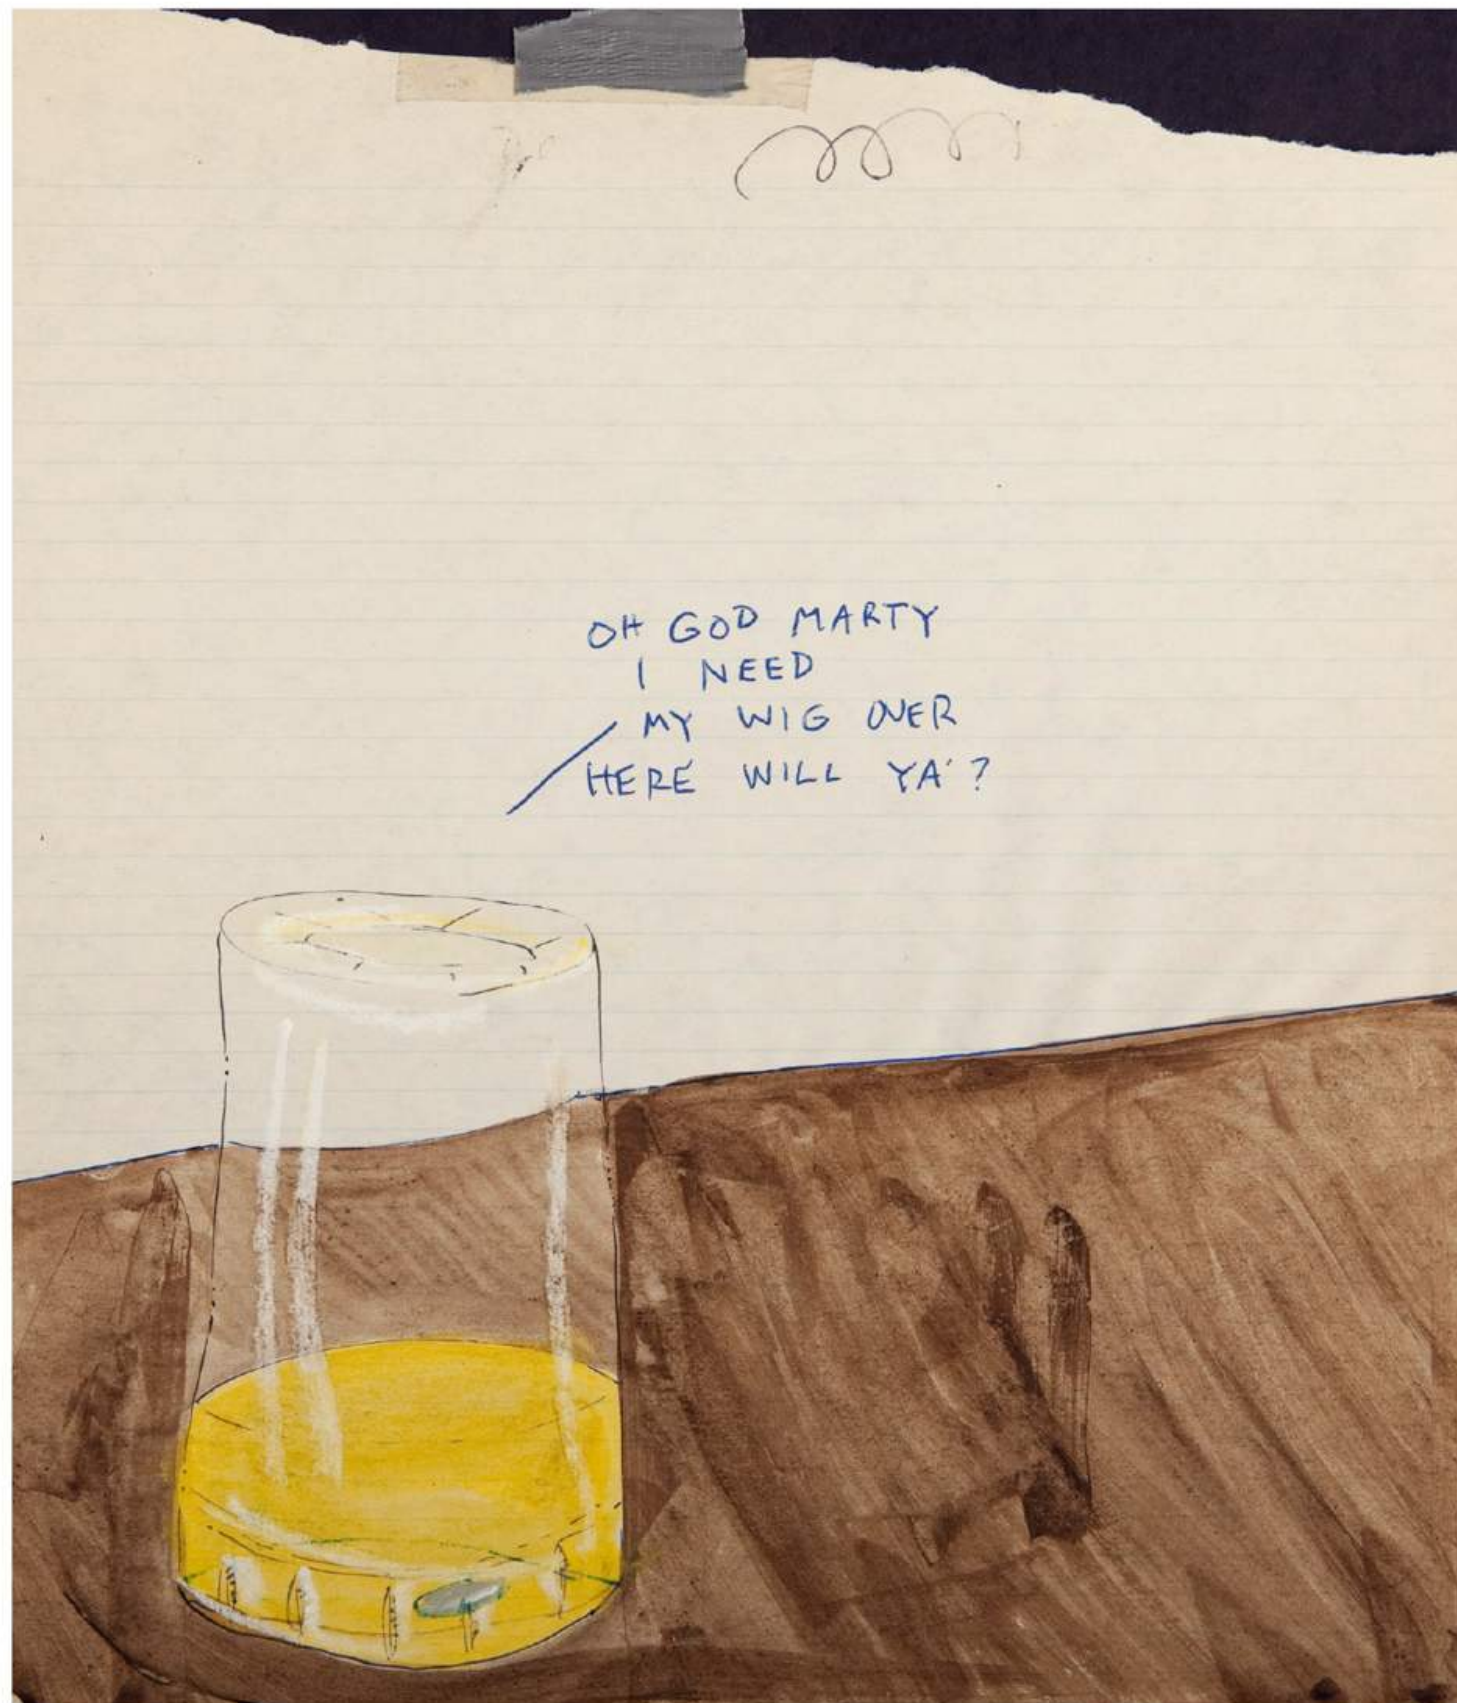 OH GOD MARTY
I NEED
MY WIG OVER
HERE WILL YA'?